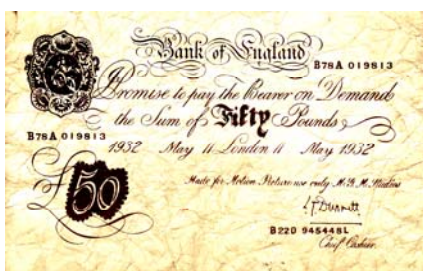 Bank of England
B78A 019813
Promise to pay the Bearer on Demand
the Sum of Fifty Pounds
B78A 019813
1932 May 11 London 11 May 1932
£50
Made for Motion Picture use only M.G.M. Studios
B220 945448L
Chief Cashier.